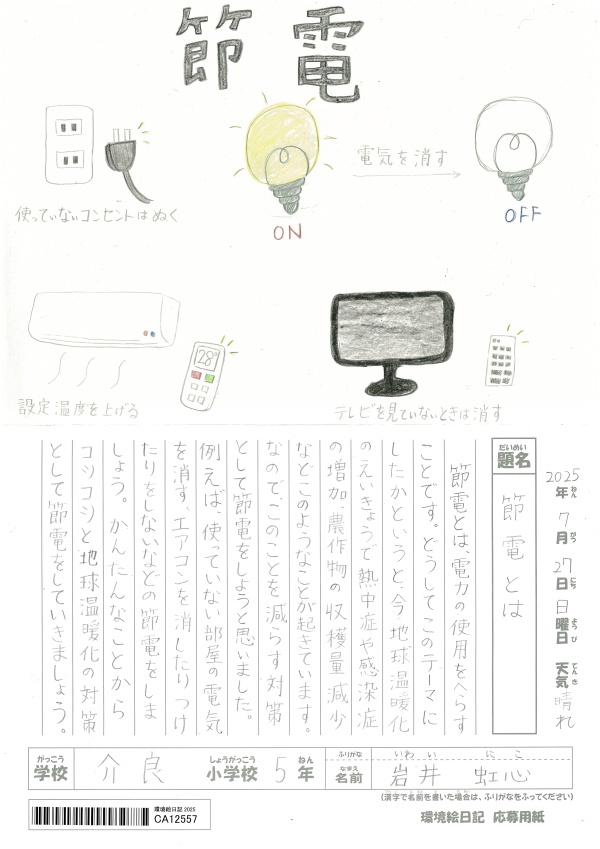 節電
使っていないコンセントはぬく
ON
電気を消す
OFF
28°
設定温度を上げる
テレビを見ていないときは消す
2025年ねん 7月がつ 27日にち 日曜日ようび 天気てんき 晴れ
題名だいめい 節電とは
節電とは、電力の使用をへらす
ことです。どうしてこのテーマに
したかというと、今、地球温暖化
のえいきょうで熱中症や感染症
の増加、農作物の収穫量減少
などこのようなことが起きています。
なので、このことを減らす対策
として節電をしようと思いました。
例えば、使っていない部屋の電気
を消す、エアコンを消したりつけ
たりをしないなどの節電をしま
しょう。かんたんなことから
コツコツと地球温暖化の対策
として節電をしていきましょう。
がっこう しょうがっこう ねん ふりがな いわい にこ
学校 介良 小学校 5年 名前なまえ 岩井 虹心
(漢字で名前を書いた場合は、ふりがなをふってください)
環境絵日記 2025
CA12557
環境絵日記 応募用紙